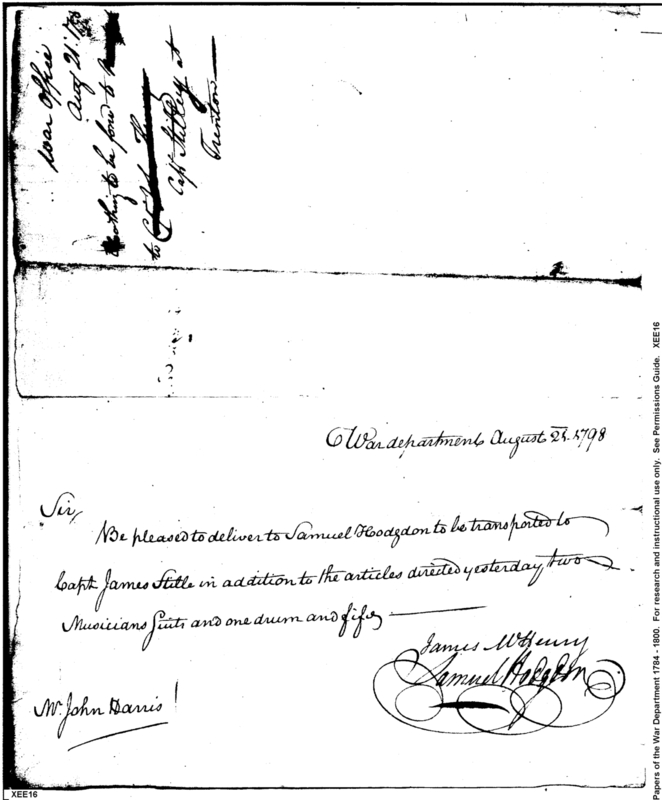 War Office
Aug 21. 1798
to be forw'd to
to
Capt. Stille at
Trenton
War department August 21. 1798
Sir,
Be pleased to deliver to Samuel Hodgdon to be transported to
Capt. James Stille in addition to the articles directed yesterday two
Musicians Suits and one drum and fife
James McHenry
Samuel Hodgdon
Mr. John Harris
XEE16
Papers of the War Department 1784 - 1800. For research and instructional use only. See Permissions Guide. XEE16